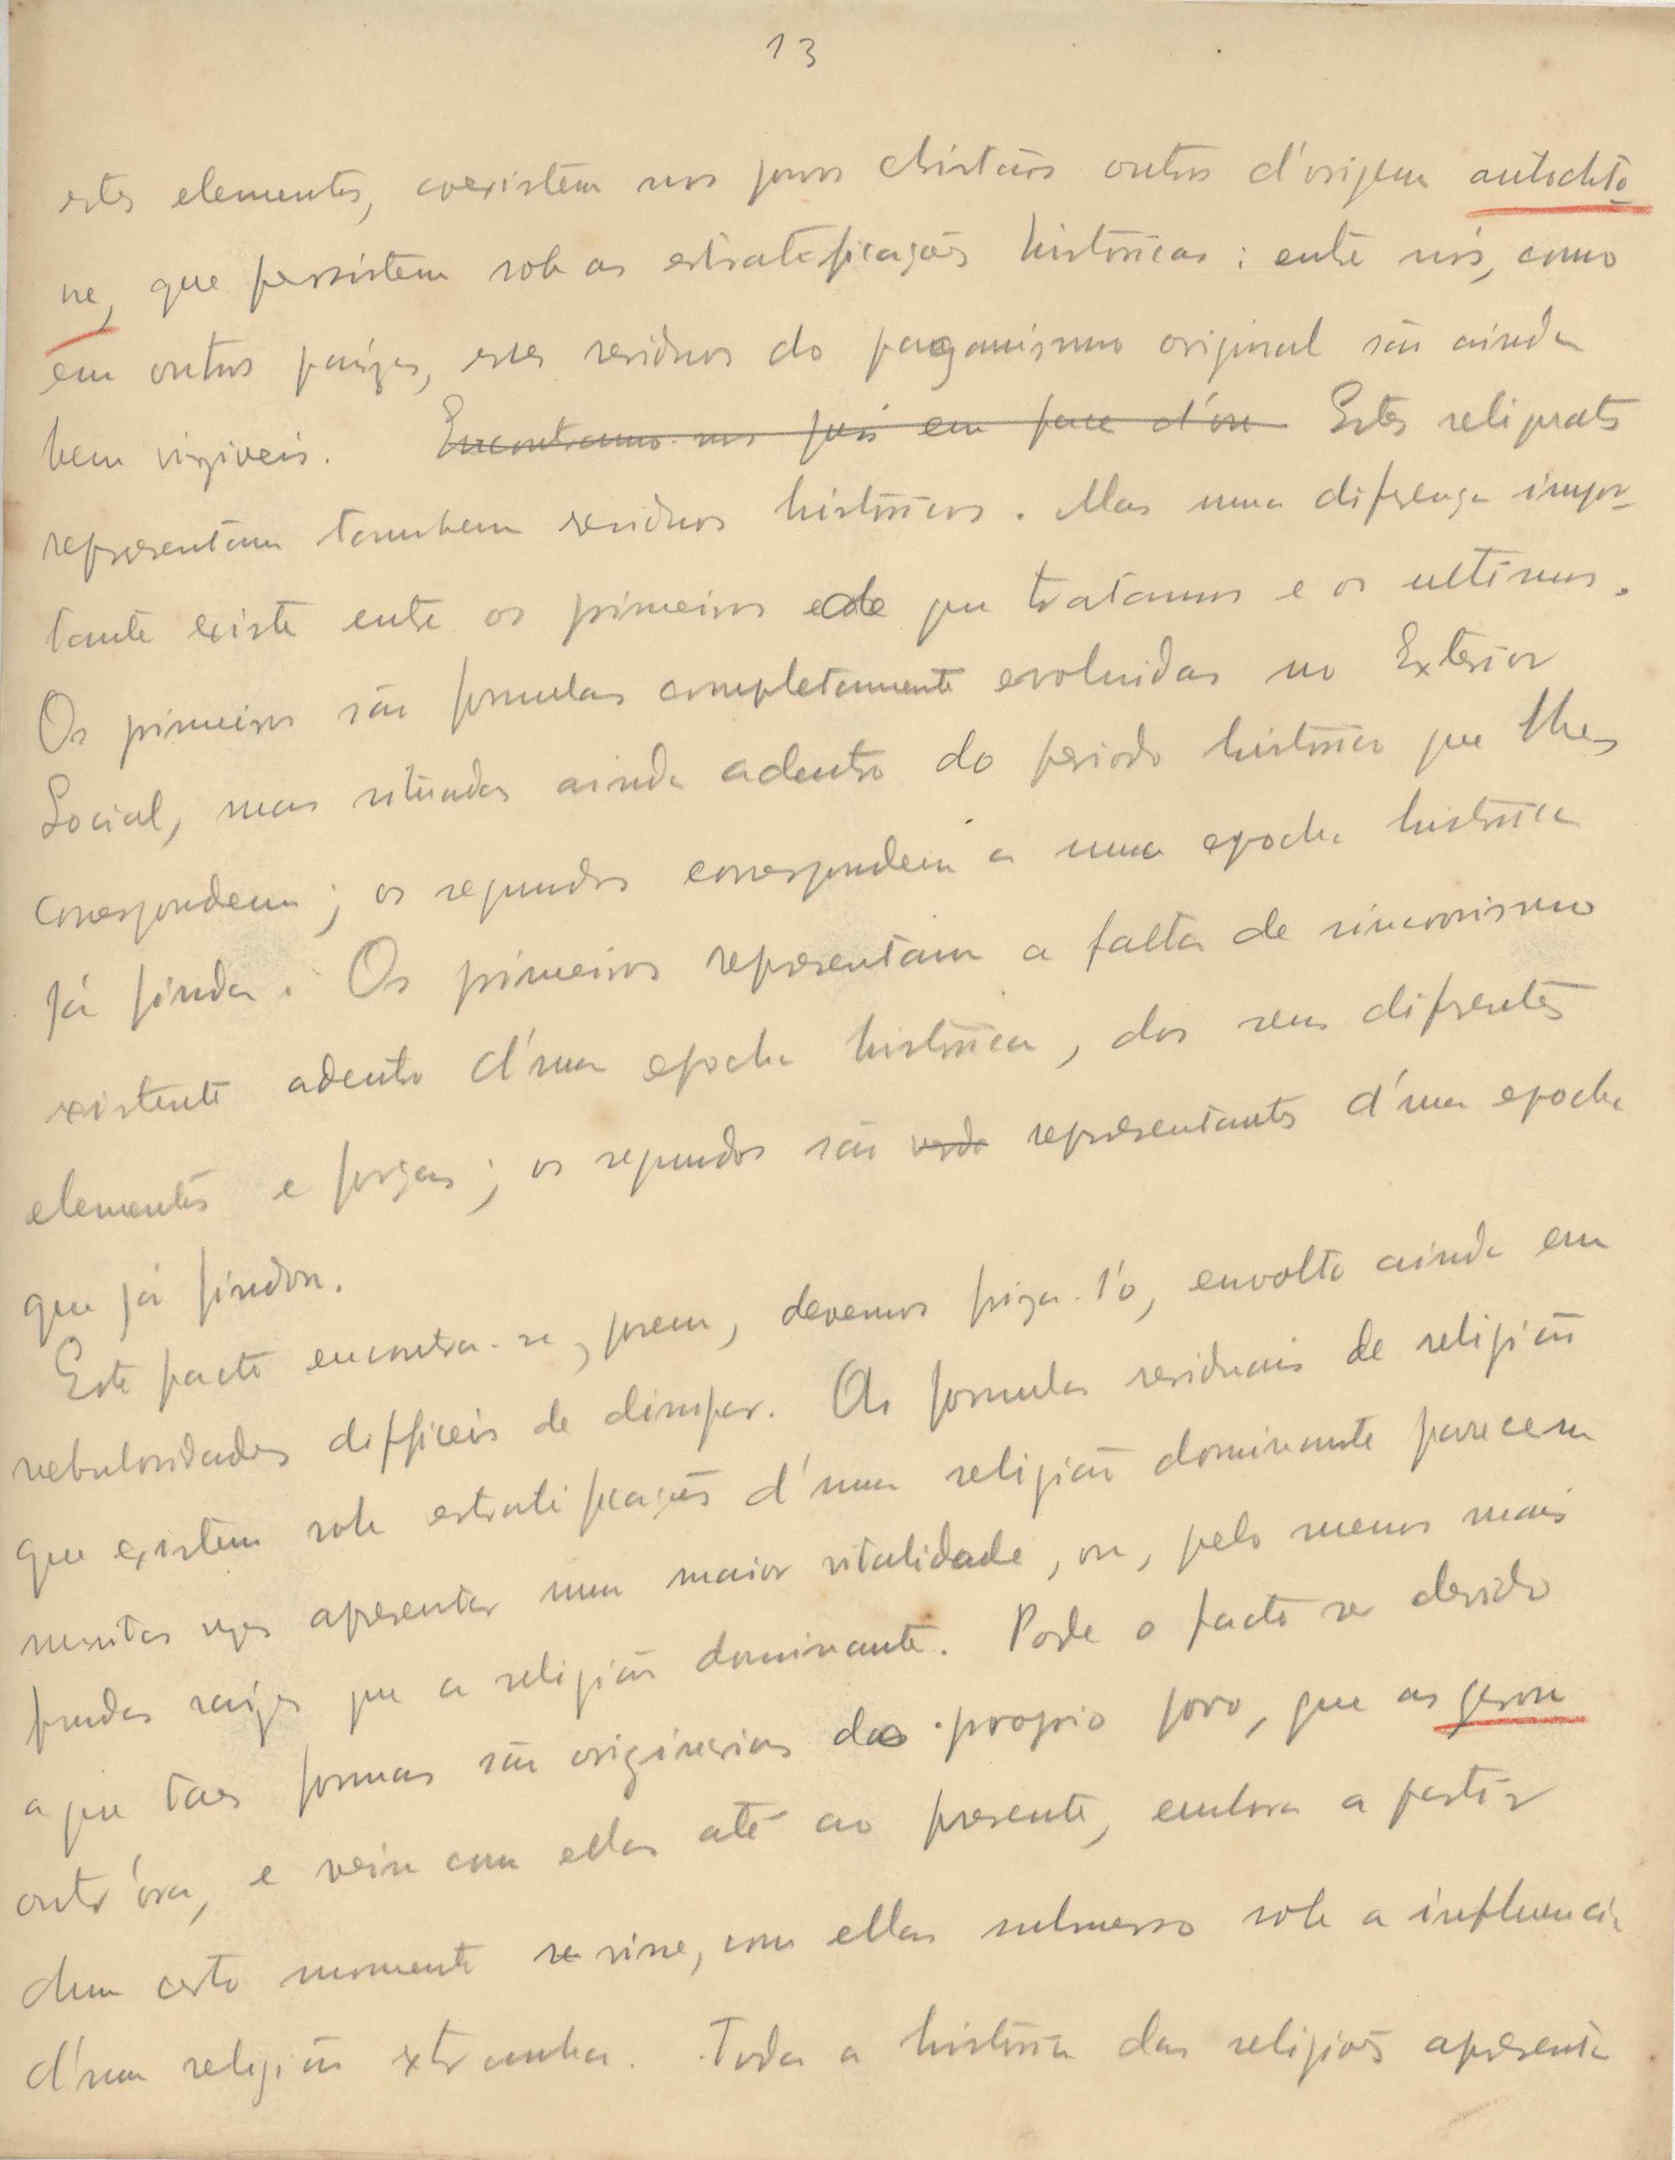 13
estes elementos, coexistem nos povos christãos outros d'origem autochto
ne, que persistem sob as estratificações históricas: entre nós, como
em outros paizes, estes residuos do paganismo original são ainda
bem viziveis. Encontramo-nos pois em face d'um Estes religiosos
representam tambem residuos históricos. Mas uma diferença impor-
tante existe entre os primeiros de que tratamos e os ultimos.
Os primeiros são formulas completamente evoluidas no Exterior
Social, mas situadas ainda adentro do periodo histórico que lhes
correspondem; os segundos correspondem a uma epocha histórica
já finda. Os primeiros representam a falta de sincronismo
existente adentro d'uma epocha histórica, dos seus diferentes
elementos e forças; os segundos são representantes d'uma epocha
que já findou.
Este facto encontra-se, porem, devemos friza-l'o, envolto ainda em
nebulosidades difficeis de dissipar. As formulas residuais de religião
que existem sob estratificações d'uma religião dominante parecem
muitas vezes apresentar uma maior vitalidade, ou, pelo menos mais
fundas raizes que a religião dominante. Pode o facto ser devido
a que taes formas são originarias do proprio povo, que as gerou
outr'ora, e veiu com ellas até ao presente, embora a partir
dum certo momento se visse, com ellas submerso sob a influencia
d'uma religião extranha. Toda a história das religiões apresenta